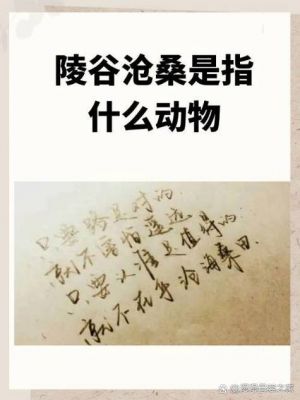 陵谷沧桑是指
什么动物
只要路是对的
就不害怕遥远
只要认准是值得的
就不在乎沧海桑田